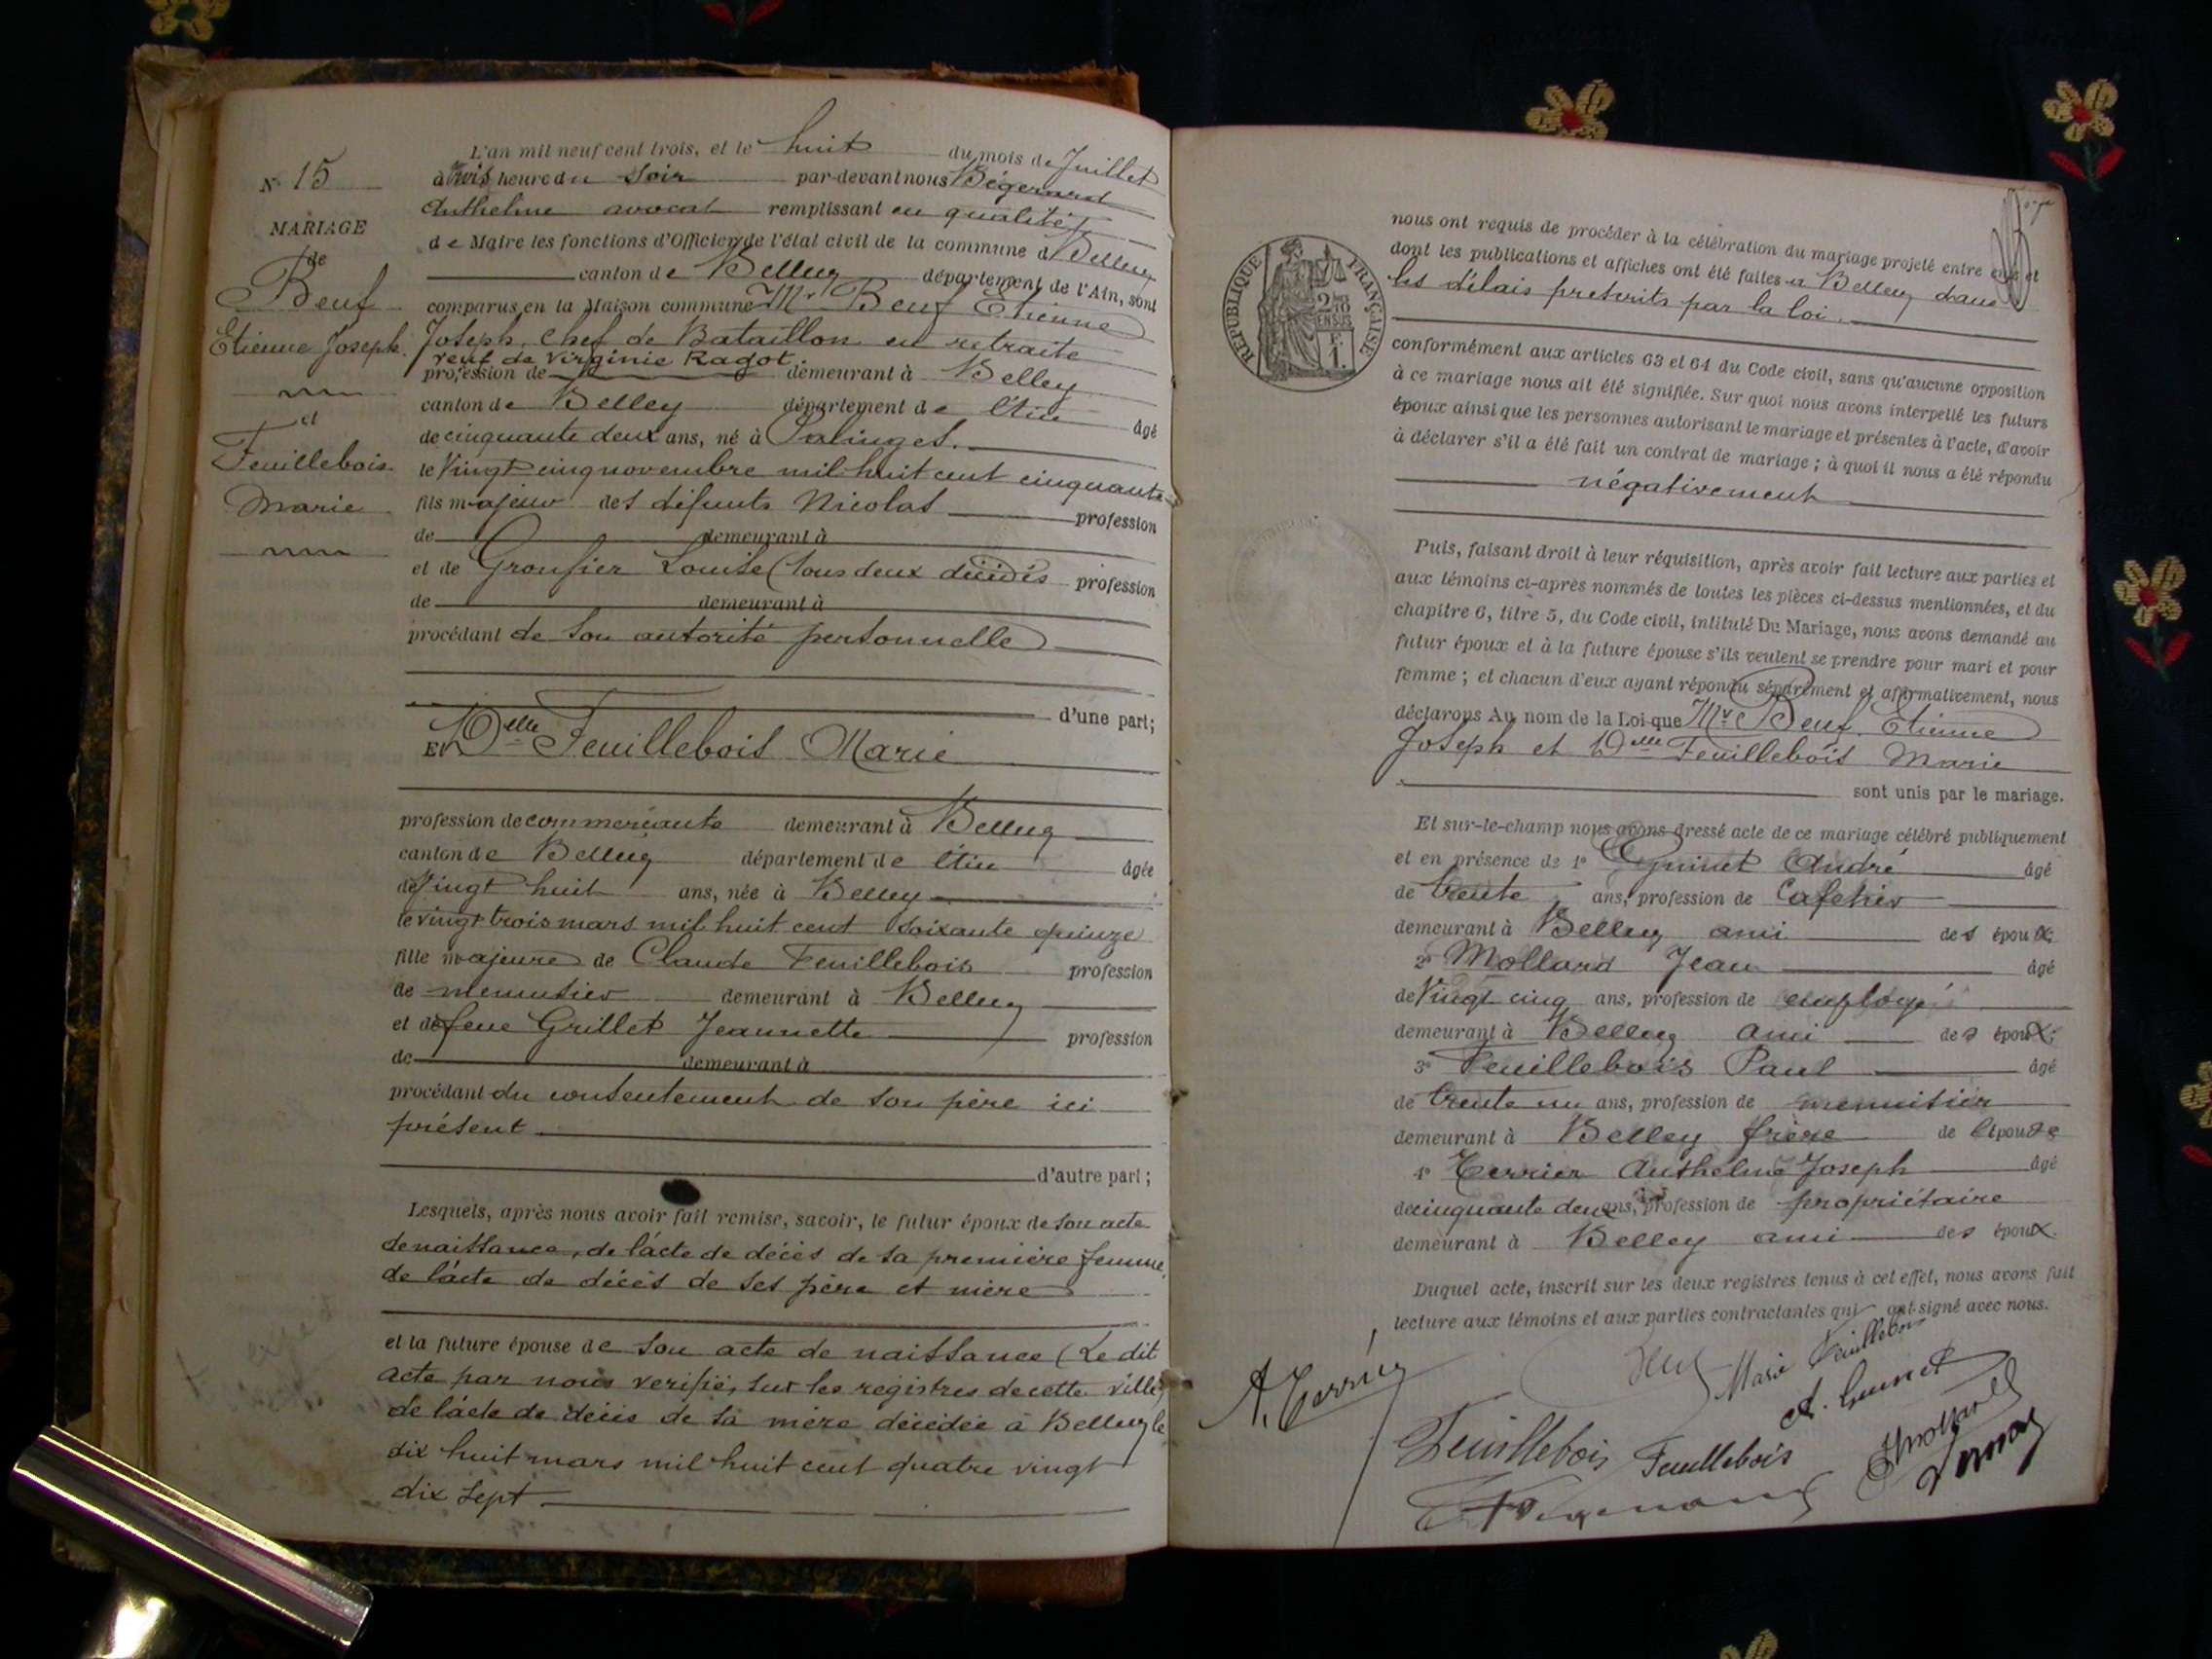 N° 15
MARIAGE
de
Beuf
Etienne Joseph
et
Feuillebois
Marie
L'an mil neuf cent trois, et le huit du mois de Juillet
à trois heure du Soir par-devant nous Bégerard
Anthelme avocat remplissant en qualité
de Maire les fonctions d'Officier de l'état civil de la commune d Belley
canton de Belley département de l'Ain, sont
comparus en la Maison commune Mr Beuf Etienne
Joseph, Chef de Bataillon en retraite
veuf de Virginie Ragot
profession de demeurant à Belley
canton de Belley département de l'Ain âgé
de cinquante deux ans, né à Palinges.
le Vingt cinq novembre mil huit cent cinquante
fils majeur des défunts Nicolas profession
de demeurant à
et de Grousier Louise (tous deux décédés profession
de demeurant à
procédant de son autorité personnelle
d'une part;
Et Delle Feuillebois Marie
profession de commerçante demeurant à Belley
canton de Belley département de l'Ain âgée
de Vingt huit ans, née à Belley
le vingt trois mars mil huit cent soixante quinze
fille majeure de Claude Feuillebois profession
de menuisier demeurant à Belley
et de feue Grillet Jeannette profession
de demeurant à
procédant du consentement de son père ici
présent
d'autre part;
Lesquels, après nous avoir fait remise, savoir, le futur époux de son acte
de naissance, de l'acte de décès de sa première femme,
de l'acte de décès de ses père et mère
et la future épouse de son acte de naissance (Le dit
acte par nous vérifié, sur les registres de cette ville)
de l'acte de décès de sa mère décédée à Belley le
dix huit mars mil huit cent quatre vingt
dix sept
RÉPUBLIQUE FRANÇAISE
EN SUS
nous ont requis de procéder à la célébration du mariage projeté entre eux et
dont les publications et affiches ont été faites à Belley dans
les délais prescrits par la loi.
conformément aux articles 63 et 64 du Code civil, sans qu'aucune opposition
à ce mariage nous ait été signifiée. Sur quoi nous avons interpellé les futurs
époux ainsi que les personnes autorisant le mariage et présentes à l'acte, d'avoir
à déclarer s'il a été fait un contrat de mariage ; à quoi il nous a été répondu
négativement
Puis, faisant droit à leur réquisition, après avoir fait lecture aux parties et
aux témoins ci-après nommés de toutes les pièces ci-dessus mentionnées, et du
chapitre 6, titre 5, du Code civil, intitulé Du Mariage, nous avons demandé au
futur époux et à la future épouse s'ils veulent se prendre pour mari et pour
femme ; et chacun d'eux ayant répondu séparément et affirmativement, nous
déclarons Au nom de la Loi que Mr Beuf Etienne
Joseph et Delle Feuillebois Marie
sont unis par le mariage.
Et sur-le-champ nous avons dressé acte de ce mariage célébré publiquement
et en présence de 1° Guinet André âgé
de trente ans, profession de Cafetier
demeurant à Belley ami des époux;
2° Mollard Jean âgé
de Vingt cinq ans, profession de employé
demeurant à Belley ami des époux;
3° Feuillebois Paul âgé
de trente un ans, profession de menuisier
demeurant à Belley frère de l'épouse
4° Terrier Anthelme Joseph âgé
de cinquante deux ans, profession de propriétaire
demeurant à Belley ami des époux.
Duquel acte, inscrit sur les deux registres tenus à cet effet, nous avons fait
lecture aux témoins et aux parties contractantes qui ont signé avec nous.
A. Terrier
Beuf
Marie Feuillebois
A. Guinet
Feuillebois
Feuillebois
JMollard